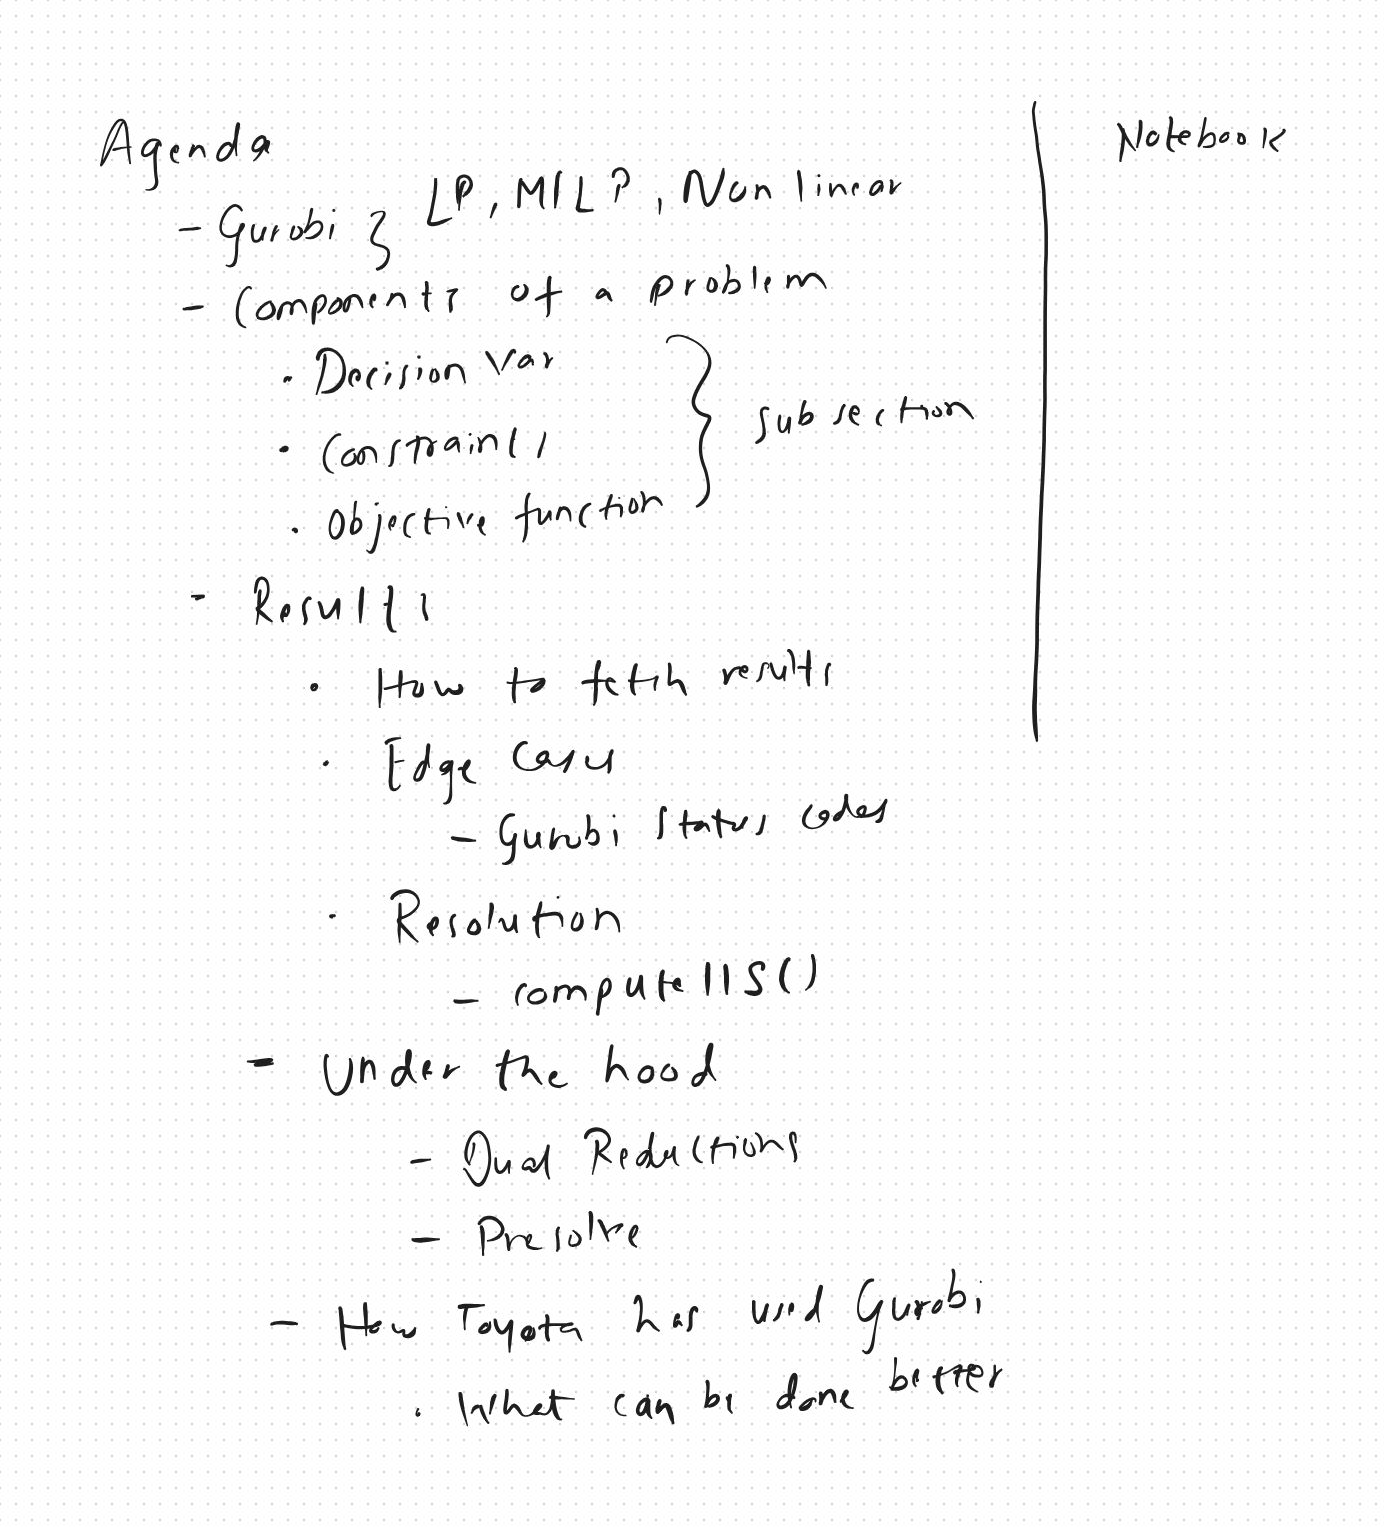 Agenda
- Gurobi } LP, MILP, Non linear
- Components of a problem
· Decision Var
· Constraints
· Objective function
} subsection
- Results
· How to fetch results
· Edge Cases
- Gurobi Status codes
· Resolution
- compute IIS()
- Under the hood
- Dual Reductions
- Presolve
- How Toyota has used Gurobi
· What can be done better
Notebook